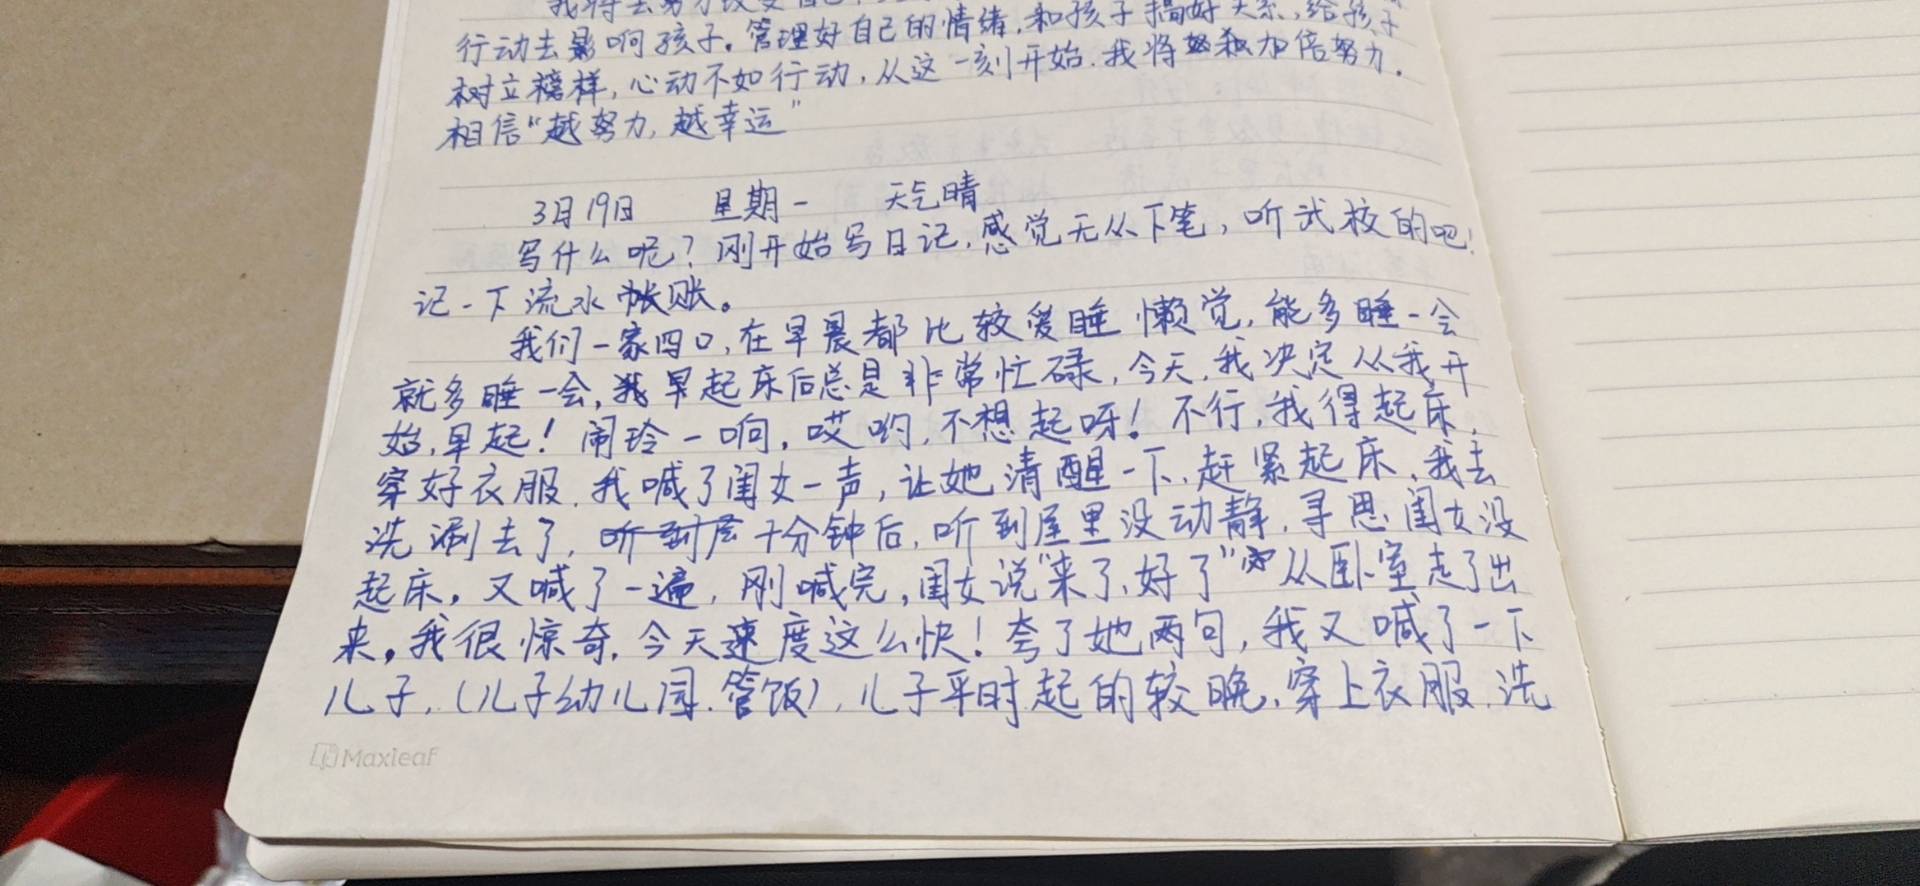 我将去努力改变自己
行动去影响孩子。管理好自己的情绪,和孩子搞好关系,给孩子
树立榜样,心动不如行动,从这一刻开始.我将加倍努力.
相信“越努力,越幸运”
3月19日 星期一 天气晴
写什么呢?刚开始写日记,感觉无从下笔,听武校的吧!
记一下流水账。
我们一家四口,在早晨都比较爱睡懒觉,能多睡一会
就多睡一会,我早起床后总是非常忙碌,今天,我决定从我开
始,早起!闹玲一响,哎哟,不想起呀!不行,我得起床,
穿好衣服,我喊了闺女一声,让她清醒一下,赶紧起床,我去
洗涮去了,十分钟后,听到屋里没动静,寻思闺女没
起床,又喊了一遍,刚喊完,闺女说“来了,好了”从卧室走了出
来,我很惊奇,今天速度这么快!夸了她两句,我又喊了一下
儿子,(儿子幼儿园.管饭),儿子平时起的较晚,穿上衣服,洗
Maxleaf